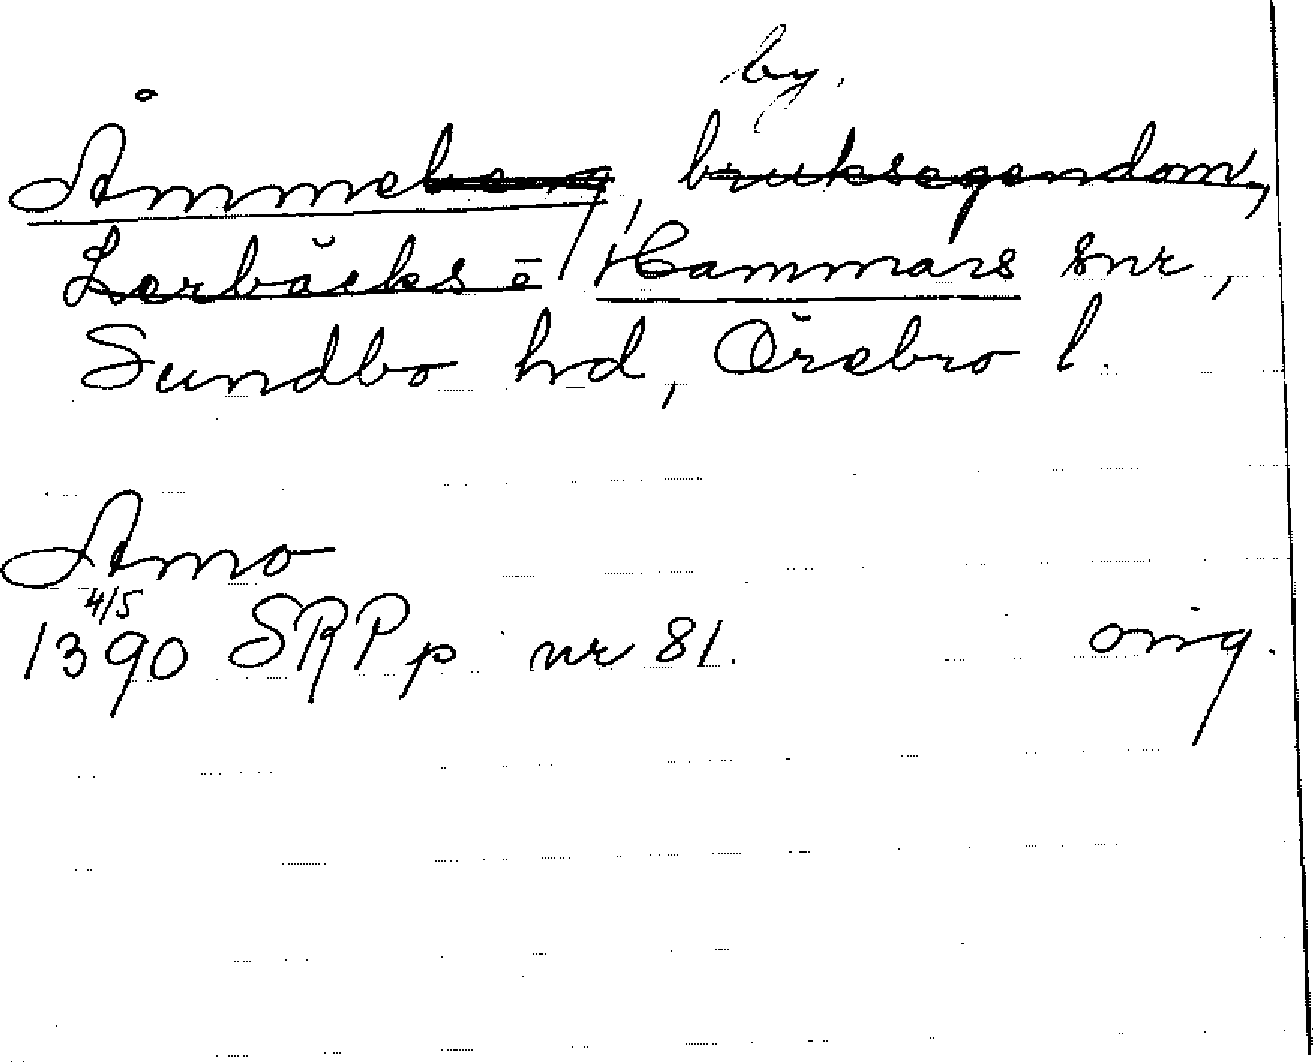 by.
Åmmeberg, bruksegendom,
Lerbäcks- Hammars snr,
Sundbo hd, Örebro l.
Amo
4/5
1390 SRPp nr 81. orig.